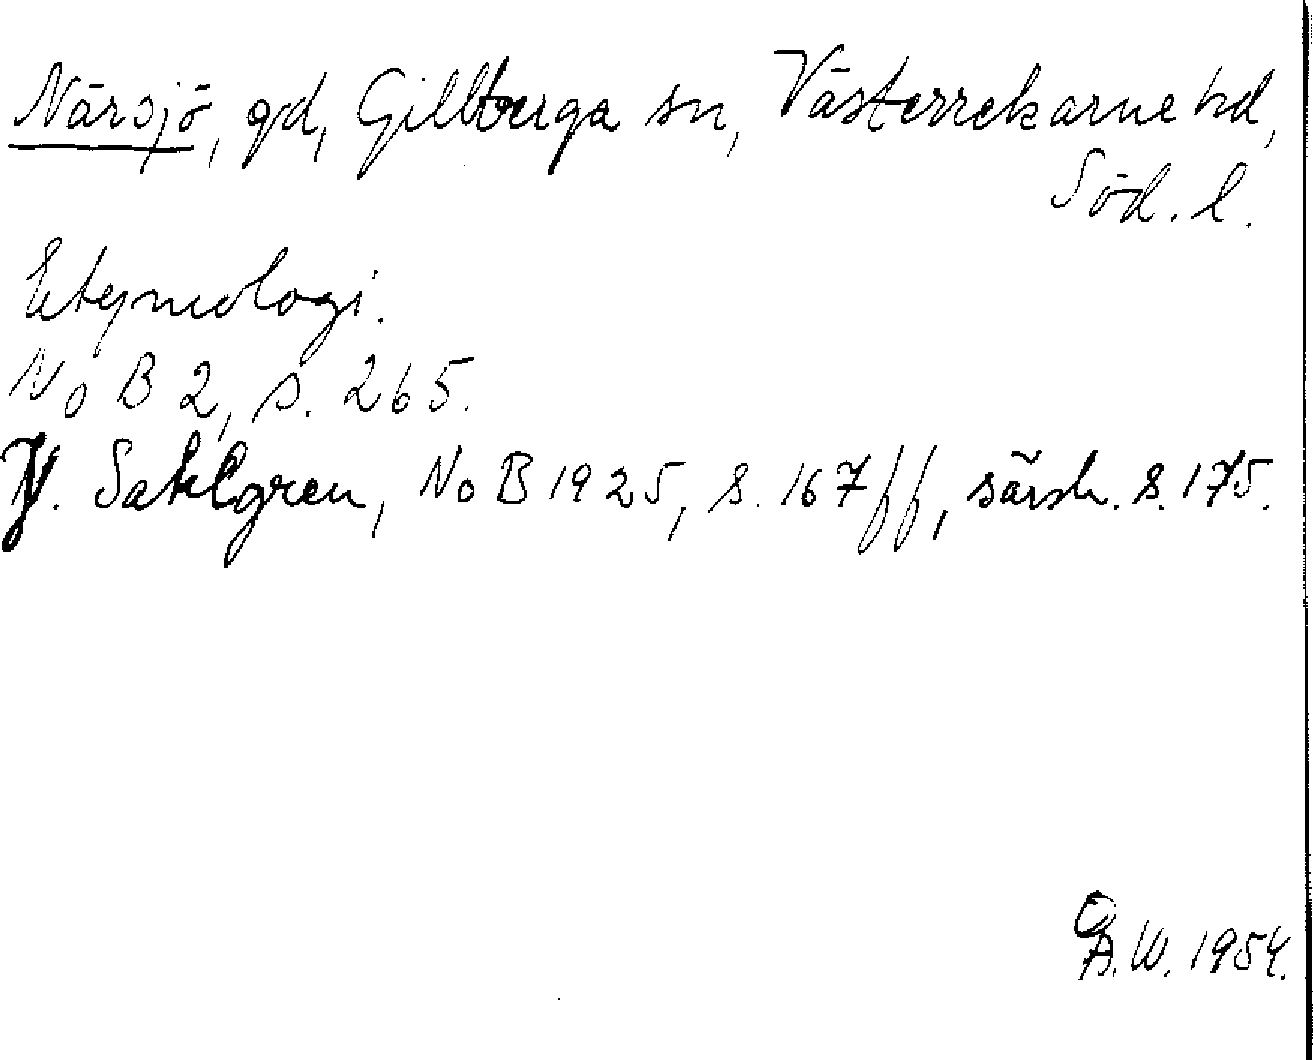 Närsjö, gd, Gillberga sn, Västerrekarne hd,
Söd. l.
Etymologi.
NoB 2, s. 265.
J. Sahlgren, NoB 1925, s. 167 ff, särsk. s. 175.
W. 1954.